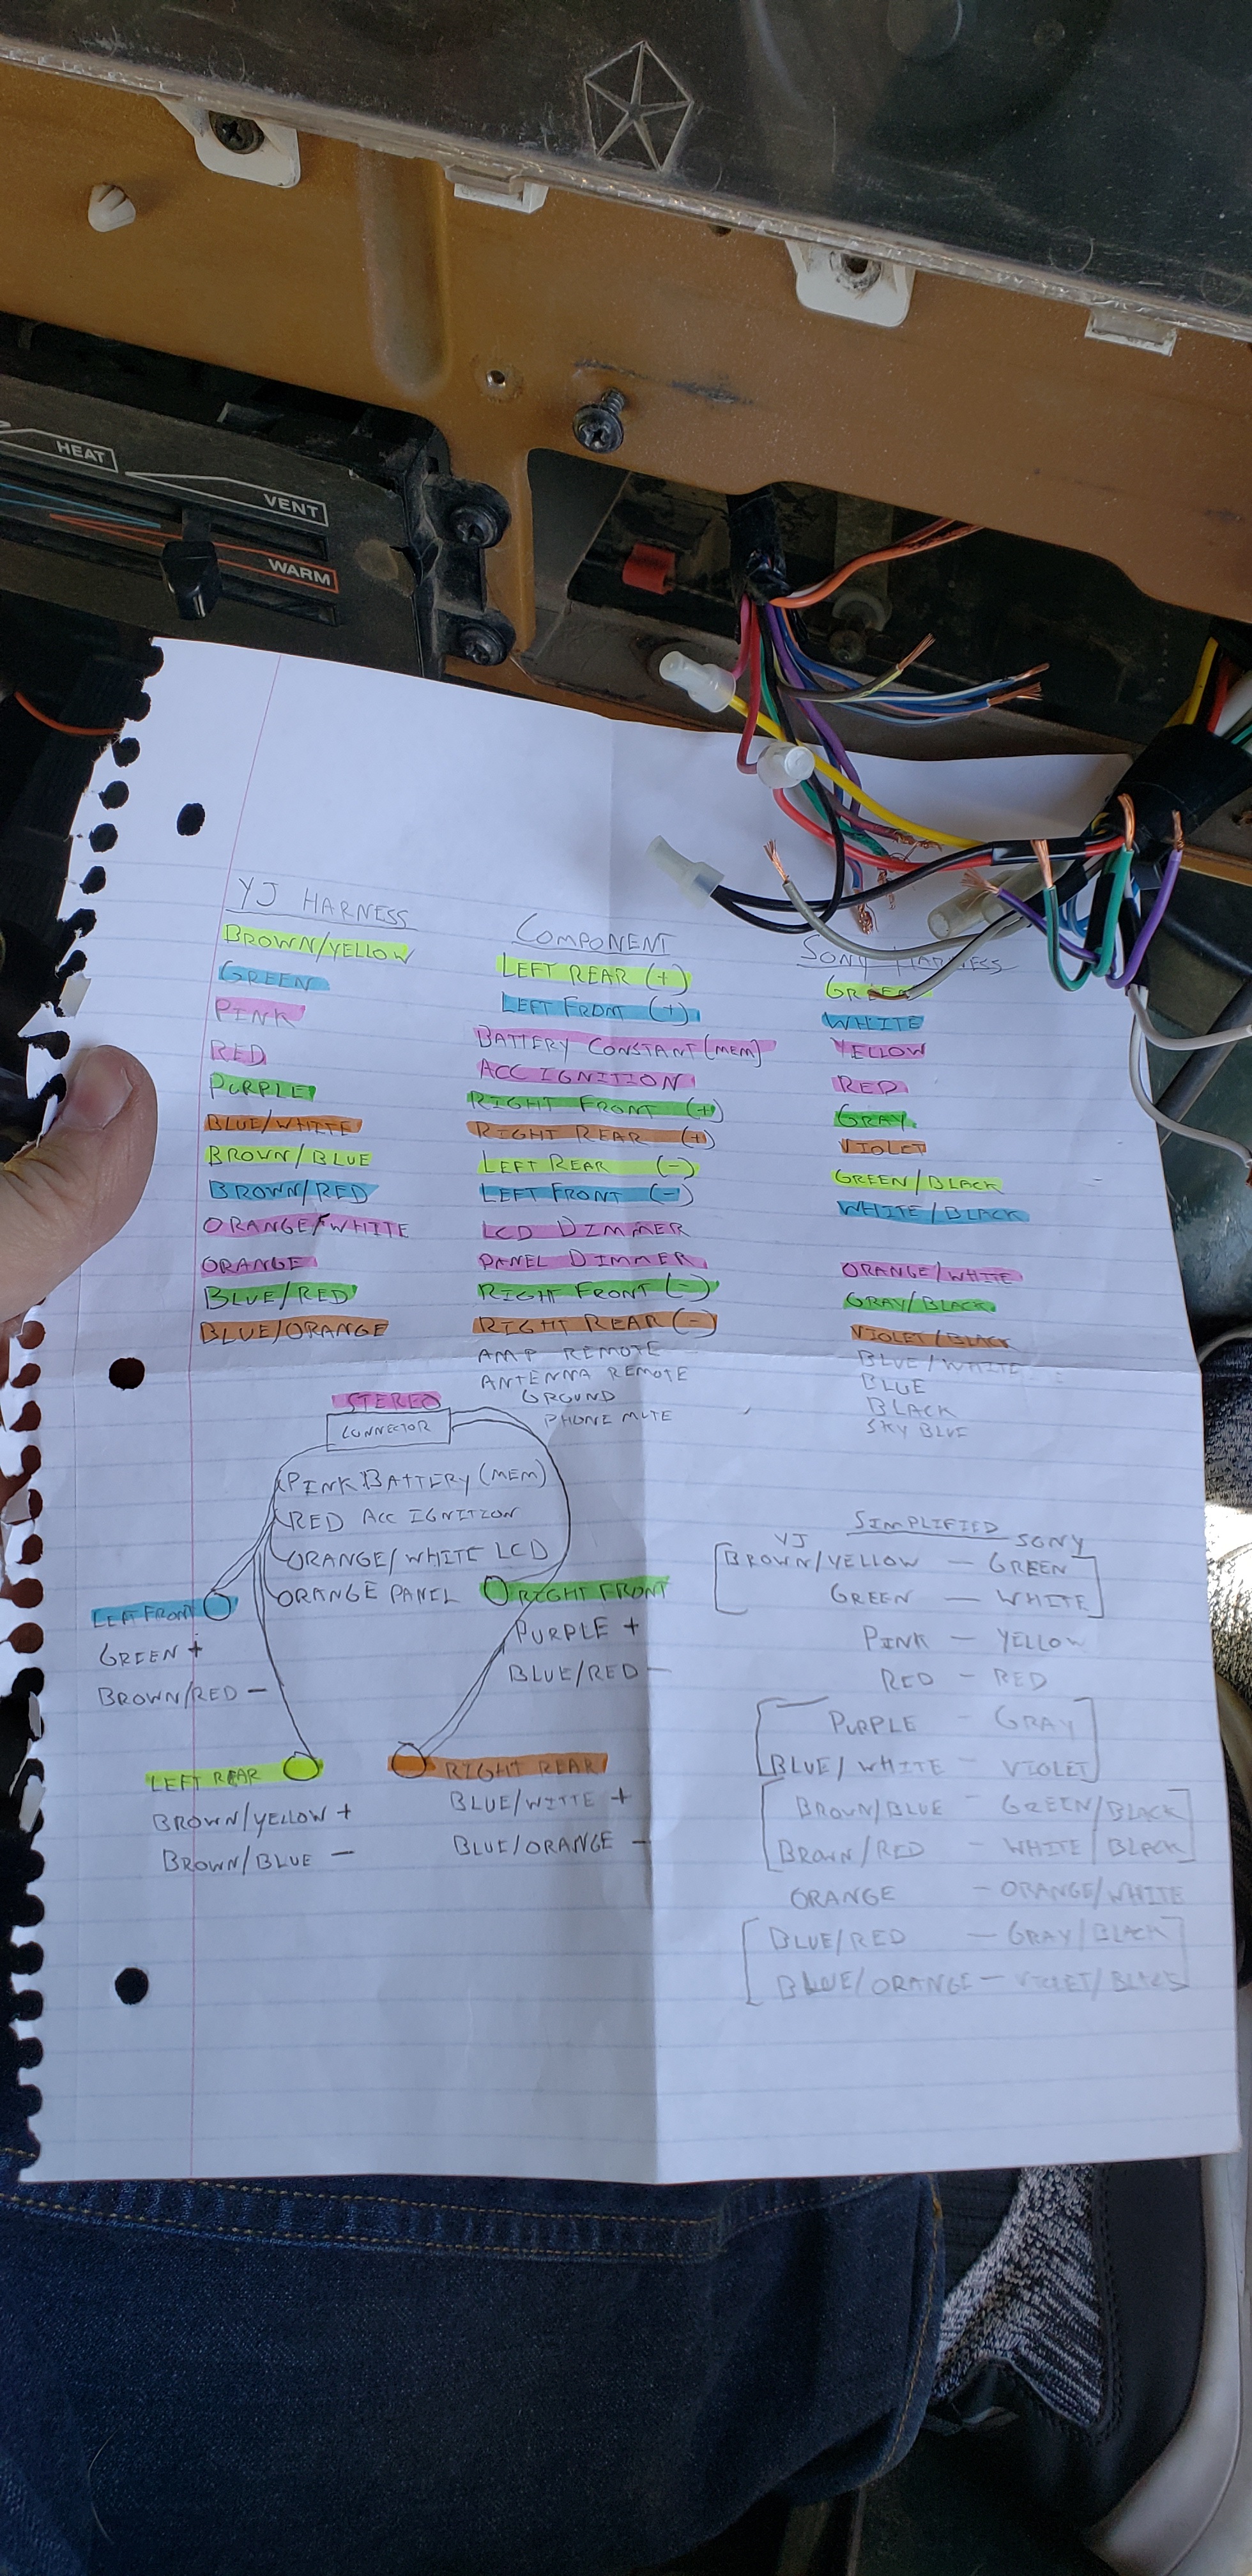 HEAT
VENT
WARM
YJ HARNESS COMPONENT SONY HARNESS
BROWN/YELLOW LEFT REAR (+) GREEN
GREEN LEFT FRONT (+) WHITE
PINK BATTERY CONSTANT (MEM) YELLOW
RED ACC IGNITION RED
PURPLE RIGHT FRONT (+) GRAY
BLUE/WHITE RIGHT REAR (+) VIOLET
BROWN/BLUE LEFT REAR (-) GREEN/BLACK
BROWN/RED LEFT FRONT (-) WHITE/BLACK
ORANGE/WHITE LCD DIMMER
ORANGE PANEL DIMMER ORANGE/WHITE
BLUE/RED RIGHT FRONT (-) GRAY/BLACK
BLUE/ORANGE RIGHT REAR (-) VIOLET/BLACK
AMP REMOTE BLUE/WHITE
ANTENNA REMOTE BLUE
GROUND BLACK
PHONE MUTE SKY BLUE
STEREO
CONNECTOR
PINK BATTERY (MEM)
RED ACC IGNITION
ORANGE/WHITE LCD
ORANGE PANEL
LEFT FRONT
GREEN +
BROWN/RED -
RIGHT FRONT
PURPLE +
BLUE/RED -
LEFT REAR
BROWN/YELLOW +
BROWN/BLUE -
RIGHT REAR
BLUE/WITTE +
BLUE/ORANGE -
SIMPLIFIED
YJ SONY
BROWN/YELLOW - GREEN
GREEN - WHITE
PINK - YELLOW
RED - RED
PURPLE - GRAY
BLUE/WHITE - VIOLET
BROWN/BLUE - GREEN/BLACK
BROWN/RED - WHITE/BLACK
ORANGE - ORANGE/WHITE
BLUE/RED - GRAY/BLACK
BLUE/ORANGE - VIOLET/BLACK